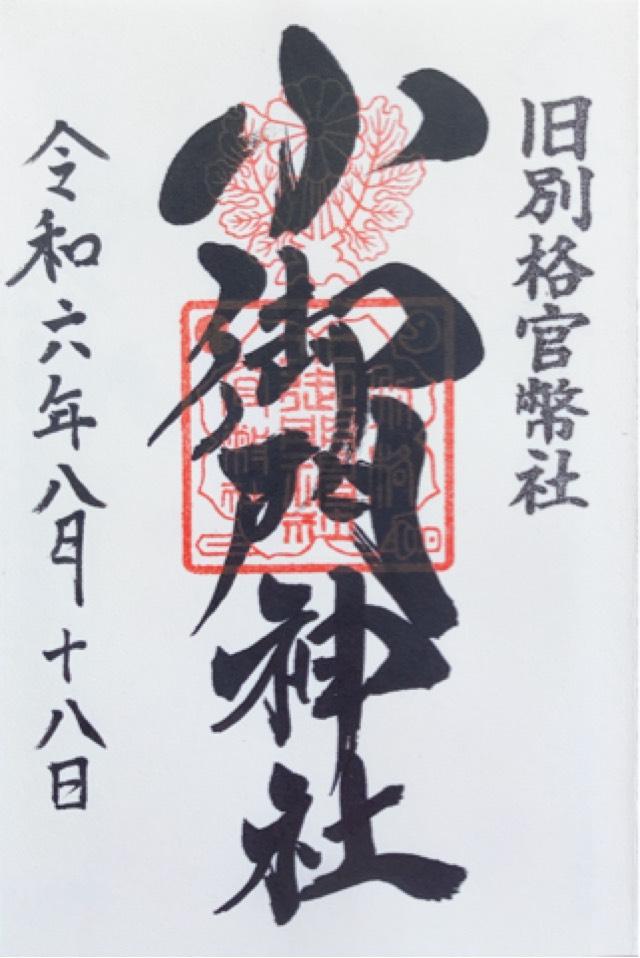 旧別格官幣社
小御門神社
令和六年八月十八日